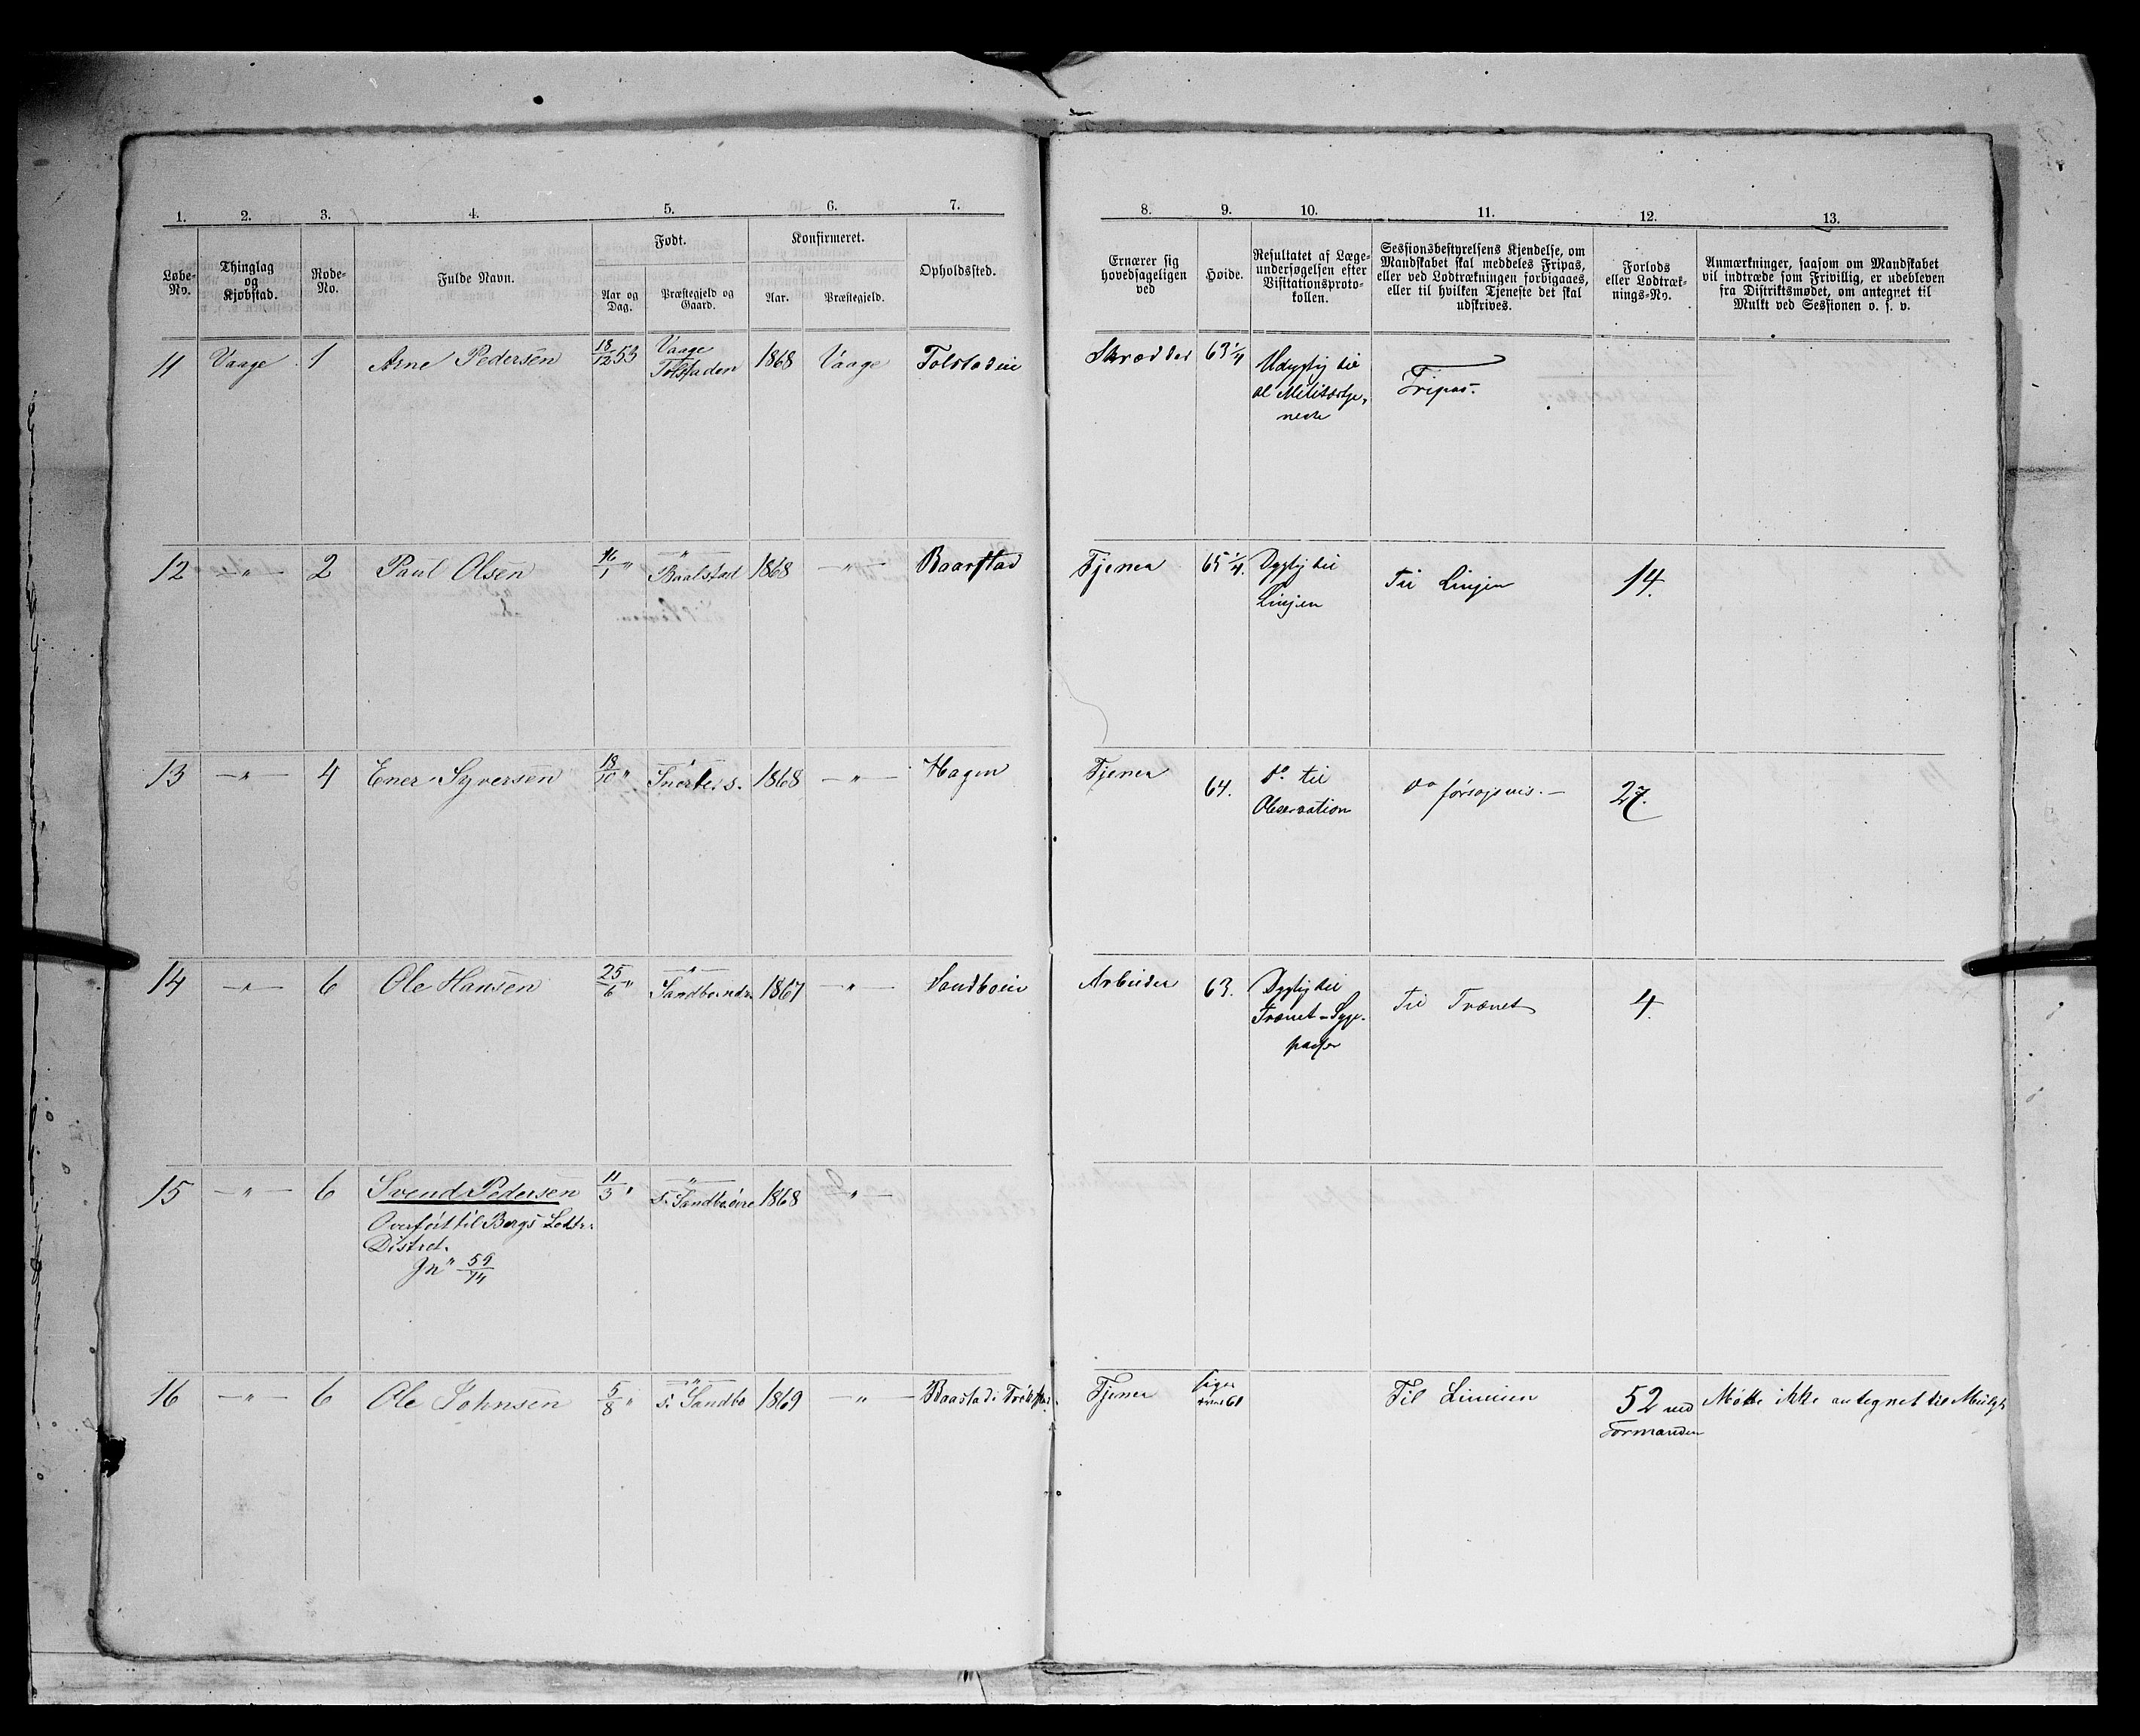 1. 2. 3. 4. 5. 6. 7. 8. 9. 10. 11. 12. 13.
Løbe-
No.
Thinglag
og
Kjøbstad.
Rode-
No.
Fulde Navn.
Født.
Aar og
Dag.
Præstegjeld og
Gaard.
Konfirmeret.
Aar.
Præstegjeld.
Opholdssted.
Ernærer sig
hovedsageligen
ved
Høide.
Resultatet af Læge-
undersøgelsen efter
Visitationsproto-
kollen.
Sessionsbestyrelsens Kjendelse, om
Mandskabet skal meddeles Fripas,
eller ved Lodtrækningen forbigaaes,
eller til hvilken Tjeneste det skal
udskrives.
Forlods
eller Lodtræk-
nings-No.
Anmærkninger, saasom om Mandskabet
vil indtræde som Frivillig, er udebleven
fra Distriktsmødet, om antegnet til
Mulkt ved Sessionen o. s. v.
11 Vaage 1 Arne Pedersen 18/12 53 Vaage
Tolstaden 1868 Vaage Tolstadeie Skrædder 63 1/4 Udygtig til
al Militærtje-
neste
Fripas.
12 " 2 Paul Olsen 16/1 " "
Baalstad 1868 " Baarstad Tjener 65 1/4. Dygtig til
Linjen
Til Linjen 14.
13 " 4 Ener Syversen 18/10 " "
Snerle s. 1868 " Hagen Tjener 64. Do til
Observation
Do forsøgsvis. 27.
14 " 6 Ole Hansen 25/6 " "
1867 " Sandboeie Arbeider 63. Dygtig til
Trænet - Syge-
passer
Til Trænet 4.
15 " 6 Svend Pedersen 11/3 " "
S. Sandbo øvre 1868 "
Overført til Bergs Lettr.
Distrct.
Jn" 59/74
16 " 6 Ole Johnsen 5/8 " "
S. Sandbo 1869 " Baastad i Tjener 61 Til Linien 52 ved
Formanden
Mødte ikke antegnet til Mulgt